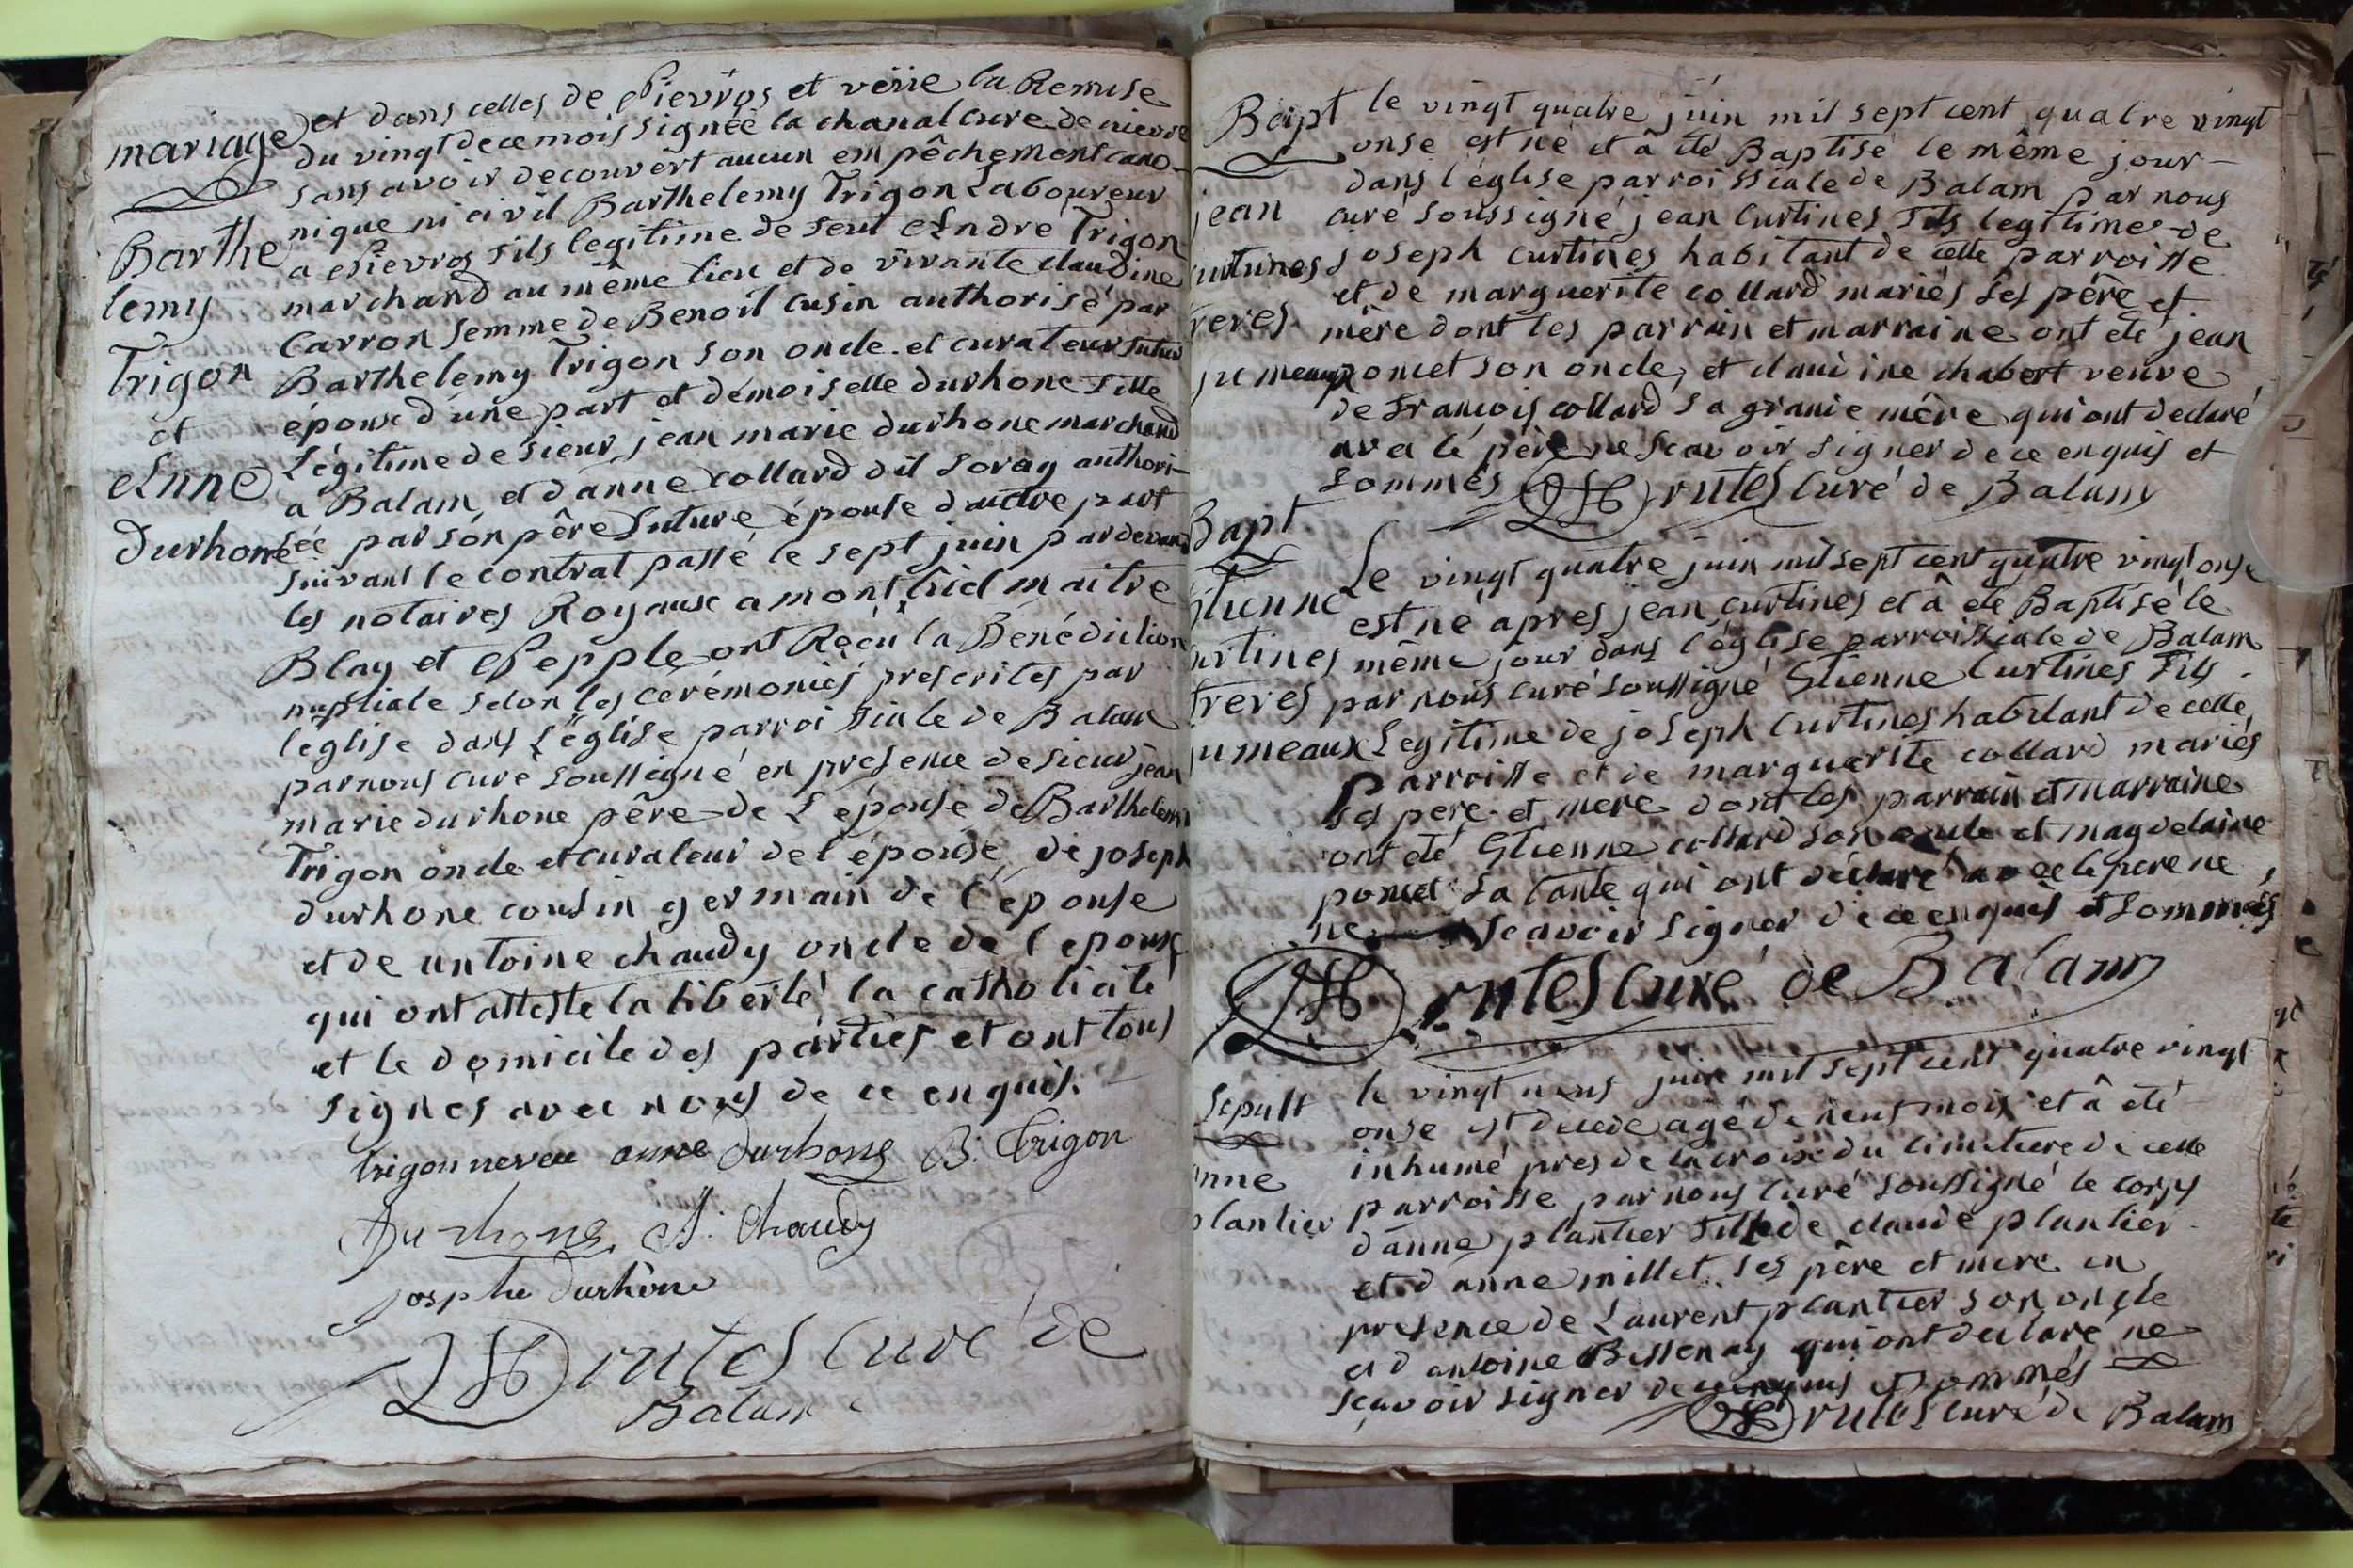 mariage
Barthe
lemy
Trigon
et
Anne
Durhone
et dans celles de Pievros et vêüe la Remise
du vingt de ce mois signée la chanal curé de
sans avoir decouvert aucun empêchement cano-
nique ni civil Barthelemy Trigon Laboureur
a Pievros fils legitime de feut André Trigon
marchand au même lieu et de vivante claudine
Carron femme de Benoit Cusin authorisé par
Barthelemy Trigon son oncle et curateur futur
époux d'une part et demoiselle durhone fille
Légitime de sieur jean marie durhone marchand
a Balam et d'anne collard dit Loray authori-
sée par son père future épouse d'autre part
suivant le contrat passé le sept juin pardevant
les notaires Royaux a montluel maitre
Blay et Pepple ont Reçu la Bénédiction
nuptiale selon les cérémonies prescrites par
l'eglise dans L'église parroissiale de Balam
par nous curé soussigné en presence de sieur jean
marie durhone père de L'épouse de Barthelemy
Trigon oncle et curateur de l'épouse, de joseph
durhone cousin germain de l'epouse
et de antoine chaudy oncle de l'epoux
qui ont atteste la liberté la catholicité
et le domicile des parties et ont tous
signes avec nous de ce enquis.
trigon neveu anne durhone B. Trigon
Durhone A. Chaudy
josphe durhône
rutes curé de
Balam
Bapt
jean
curtines
freres
jumeaux
le vingt quatre juin mil sept cent quatre vingt
onse est né et â été Baptisé le même jour
dans l'église parroissiale de Balam par nous
curé soussigné jean Curtines fils legitime de
joseph curtines habitant de cette parroisse
et de marguerite collard mariés ses père et
mère dont les parrain et marraine ont été jean
poncet son oncle, et claudine chabert veuve
de françois collard sa grande mère qui ont declaré
avec le père ne scavoir signer de ce enquis et
sommés rutes curé de Balam
Bapt
Etienne
curtines
freres
jumeaux
Le vingt quatre juin mil sept cent quatre vingt onse
est né apres jean curtines et â été Baptisé le
même jour dans l'église parroissiale de Balam
par nous curé soussigné Etienne Curtines Fils
Legitime de joseph Curtines habitant de cette
Parroisse et de marguerite collard mariés
ses pere et mere dont les parrain et marraine
ont été Etienne collard son oncle et magdelaine
poncet sa tante qui ont déclaré avec le pere ne
ne scavoir signer de ce enquis et sommés
rutes Curé de Balam
Sepult
anne
plantier
le vingt neuf juin mil sept cent quatre vingt
onse est decede agé de neuf mois et â été
inhumé pres de la croix du cimetiere de cette
parroisse par nous curé soussigné le corps
d'anne plantier fille de claude plantier
et d'anne millet ses père et mere en
presence de Laurent plantier son oncle
et d'antoine Bissenay qui ont declaré ne
scavoir signer de ce enquis et sommés
rutes curé de Balam